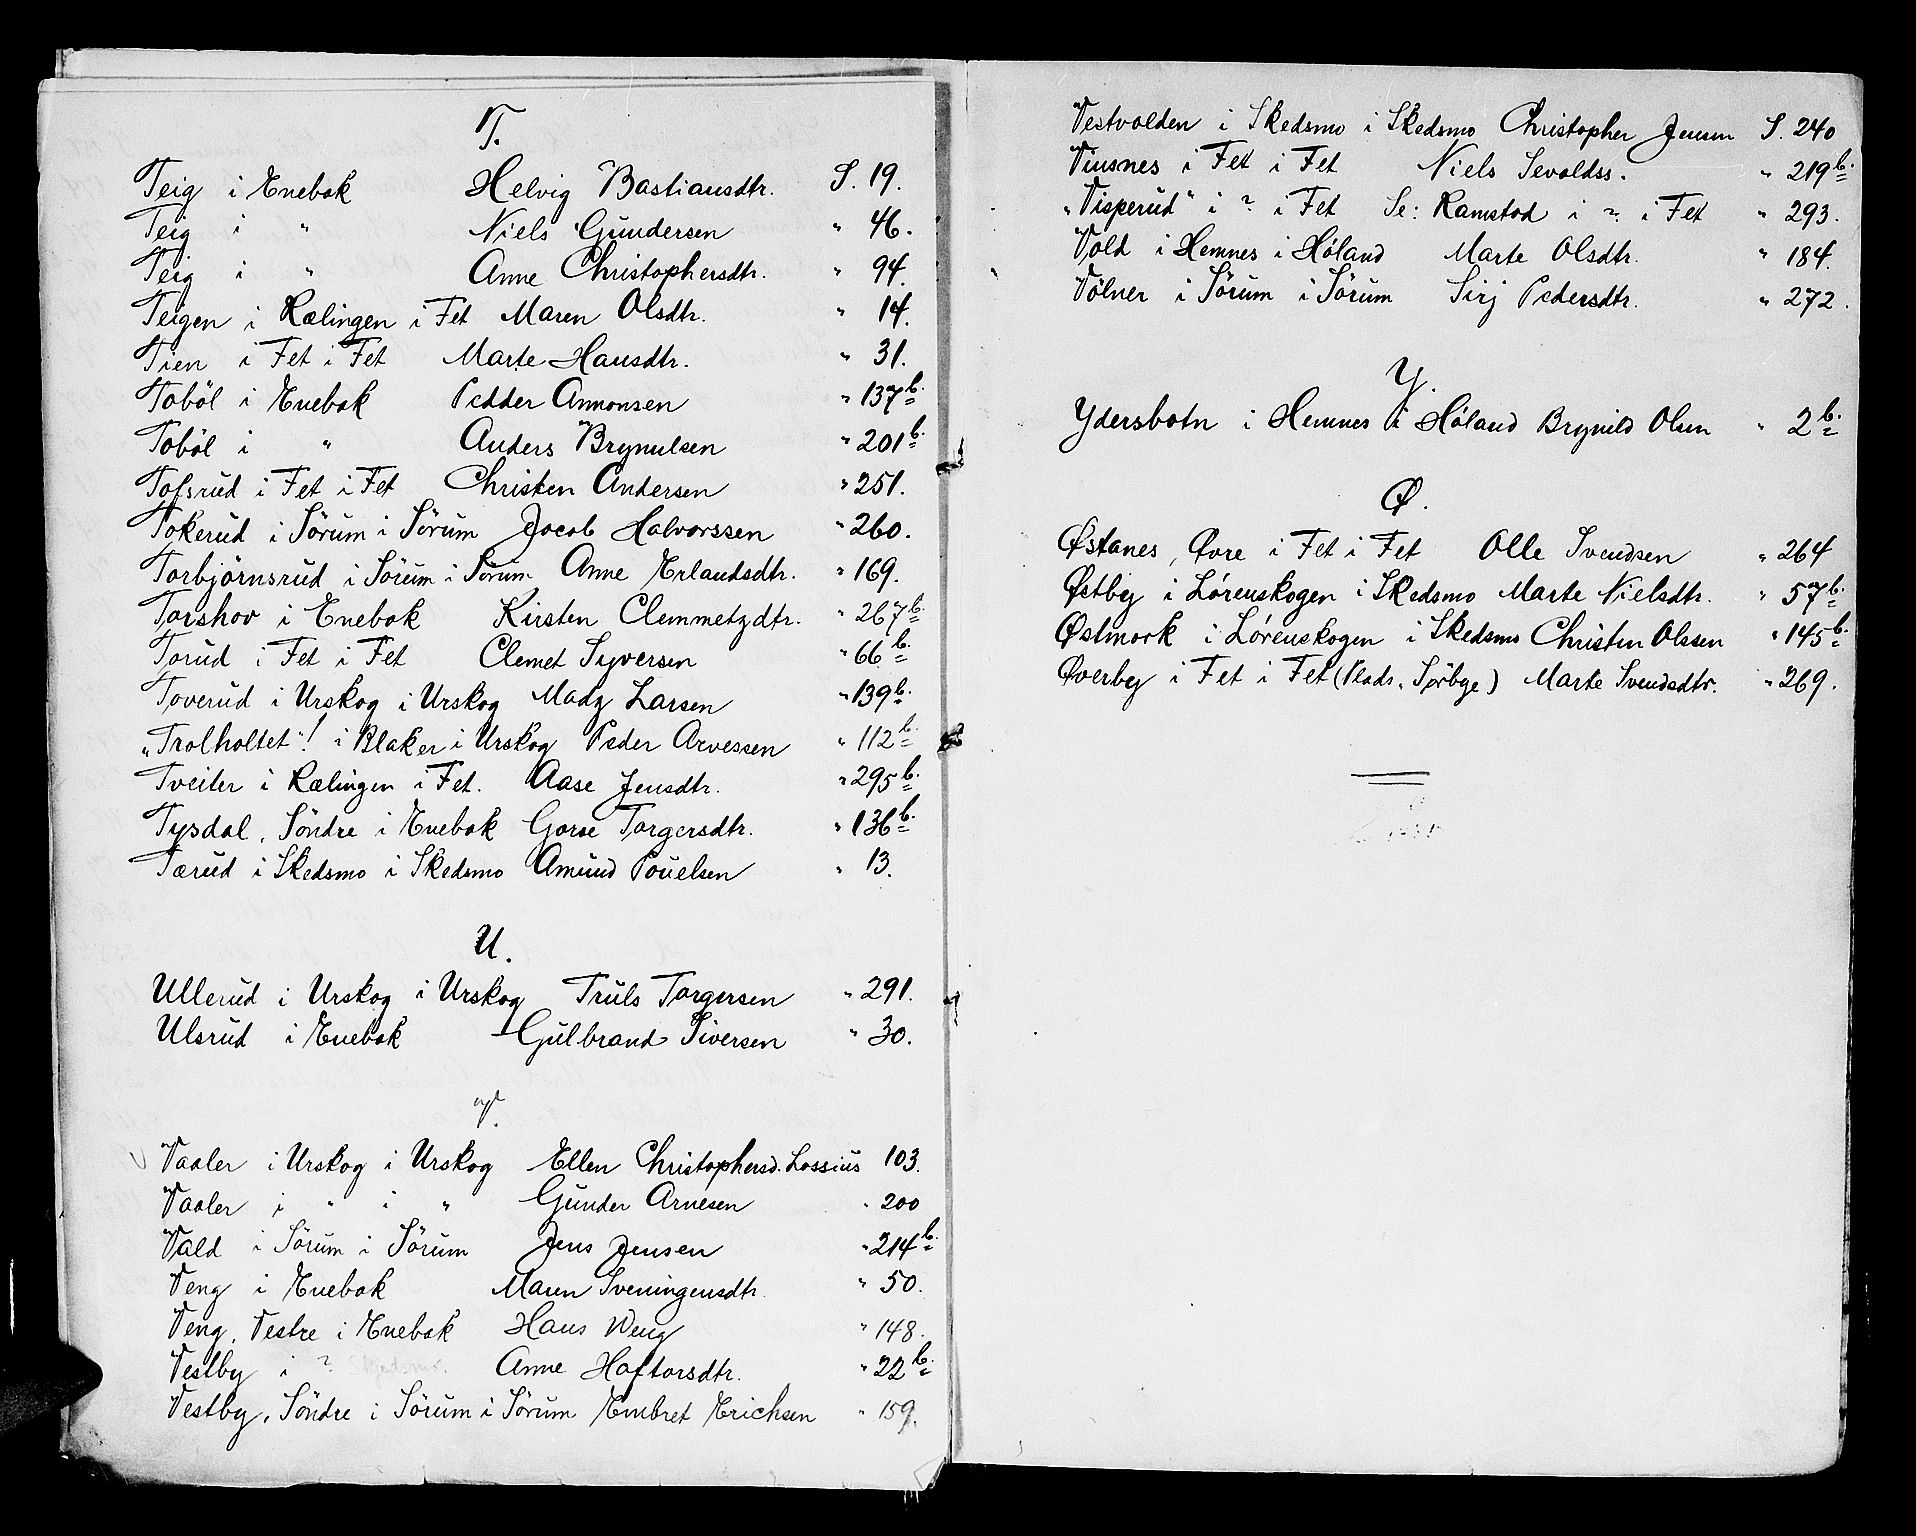 T.
Teig i Enebak Helvig Bastiansdtr. S. 19.
Teig i " Niels Gundersen " 46.
Teig i " Anne Christophersdtr. " 94.
Teigen i Rælingen i Fet Maren Olsdtr. " 14.
Tien i Fet i Fet Marte Hansdtr. " 31.
Toböl i Enebak Pedder Amonsen " 137 b.
Toböl i " Anders Brynulsen " 201 b.
Tofsrud i Fet i Fet Christen Andersen " 251.
Tokerud i Sörum i Sörum Jacob Halvorssen " 260.
Torbjörnsrud i Sörum i Sörum Anne Erlandsdtr. " 169.
Torshov i Enebak Kirsten Clemmetzdtr. " 267 b.
Torud i Fet i Fet Clemet Syversen " 66 b.
Toverud i Urskog i Urskog Madz Larsen " 139 b.
"Trolholtet"! i Blaker i Urskog Peder Arvessen " 112 b.
Tveiter i Rælingen i Fet. Aase Jensdtr. " 295 b.
Tysdal, Söndre i Enebak Gorse Torgersdtr. " 136 b.
Tærud i Skedsmo i Skedsmo Amund Pouelsen " 13.
U.
Ullerud i Urskog i Urskog Truls Torgersen " 291.
Ulsrud i Enebak Gulbrand Siversen " 30.
V.
Vaaler i Urskog i Urskog Ellen Christophersd. Lossius 103.
Vaaler i " i " Gunder Arnesen " 200
Vald i Sörum i Sörum Jens Jensen " 214 b.
Veng i Enebak Maren Sveningensdtr. " 50.
Veng, Vestre i Enebak Hans Weng " 148.
Vestby i ? Skjedsmo. Anne Haftorsdtr. " 22 b.
Vestby, Söndre i Sörum i Sörum Embret Erichsen " 159.
Vestvolden i Skedsmo i Skedsmo Christopher Jensen S. 240
Viusnes i Fet i Fet Niels Sevaldss. " 219 b.
"Visperud" i ? i Fet Se: Ramstad i ? i Fet " 293.
Vold i Hemnes i Höland Marte Olsdtr. " 184.
Völner i Sörum i Sörum Sirj Pedersdtr. " 272.
Y.
Ydersbotn i Hemnes i Höland Brynild Olsen " 2 b.
Ø.
Østanes, Øvre i Fet i Fet Olle Svendsen " 264
Østby i Lørenskogen i Skedsmo Marte Nielsdtr. " 57 b.
Østmork i Lørenskogen i Skedsmo Christen Olssen " 145 b.
Øverby i Fet i Fet (Plads. Sørbye) Marte Svendsdtr. " 269.